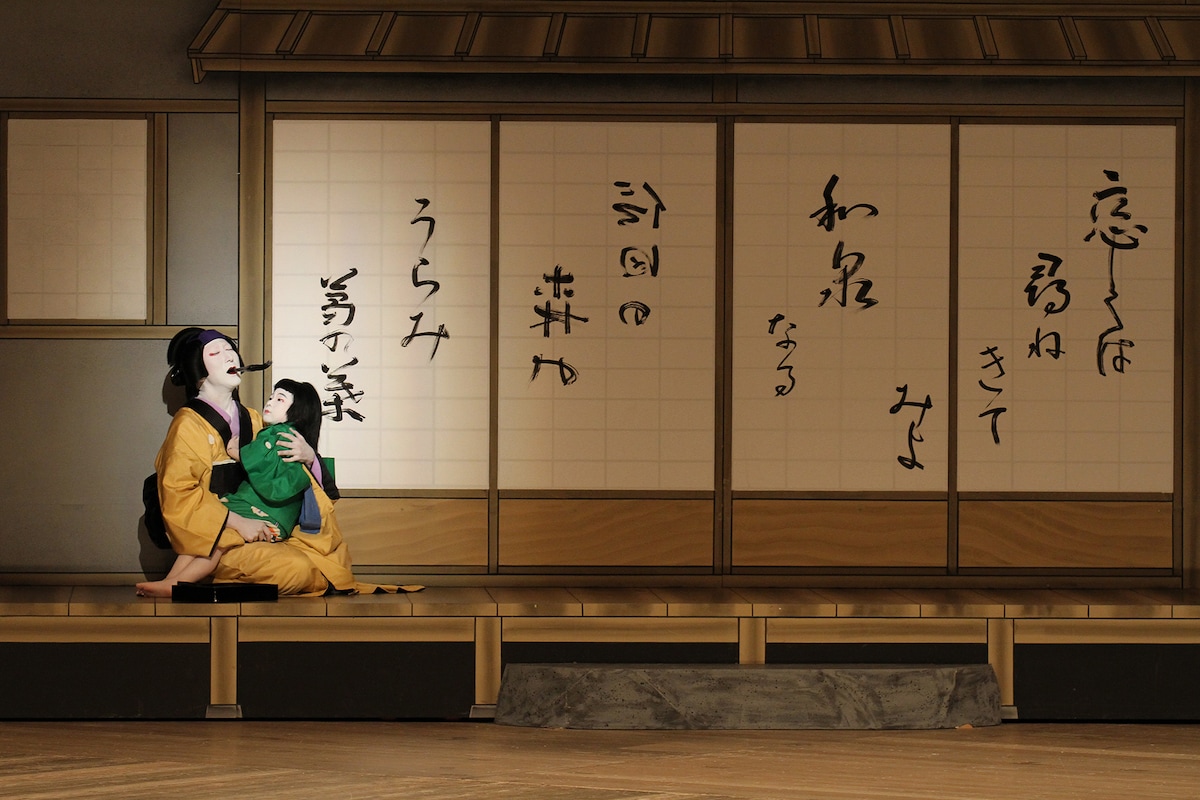 恋しくは
尋ね
きて
みよ
和泉
なる
信田の
森の
うらみ
葛の葉